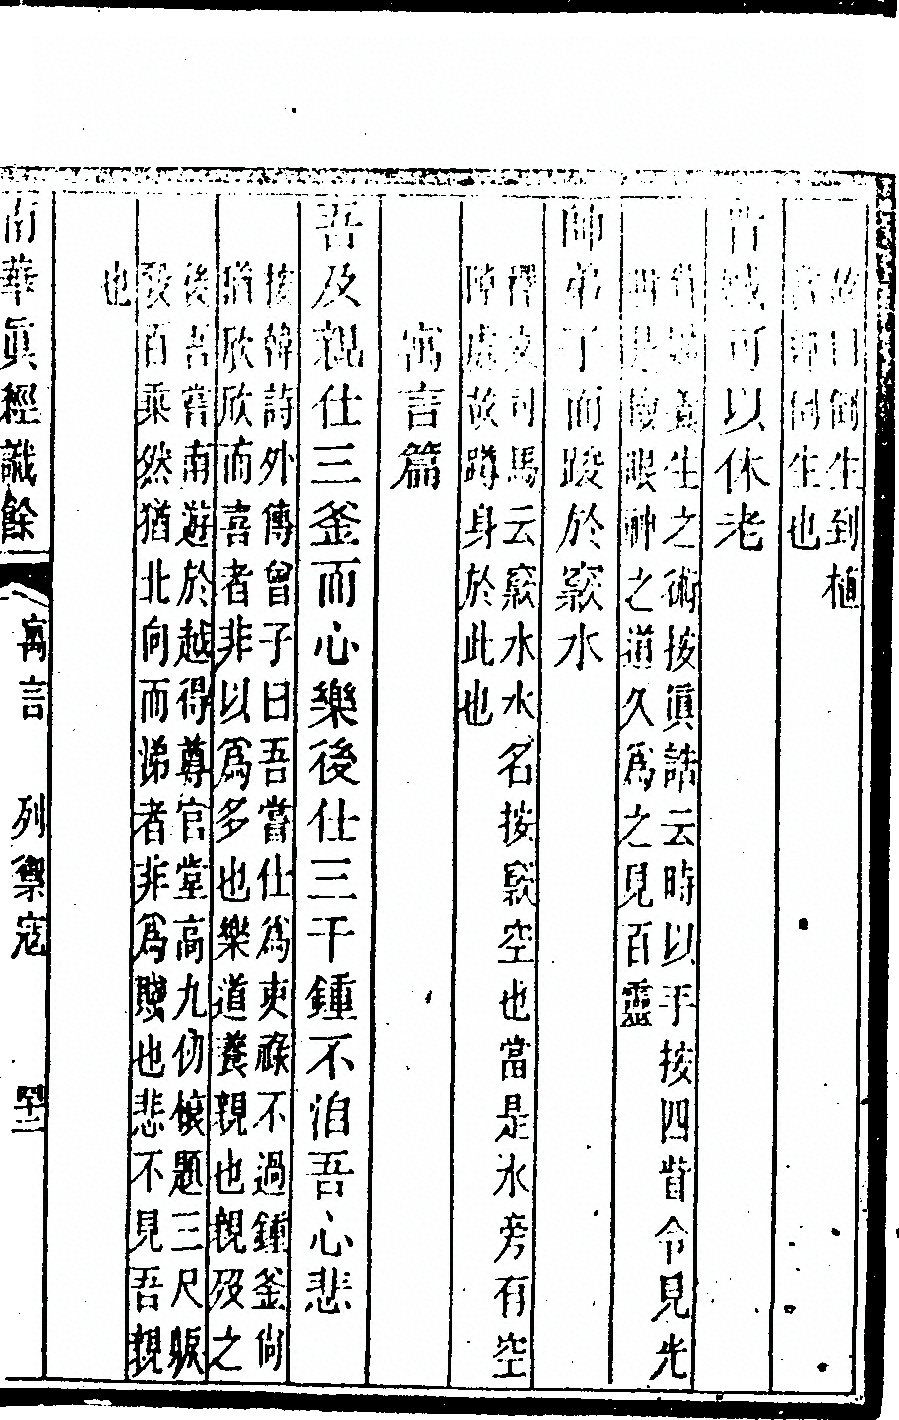 故曰倒生到植
即倒生也
眥搣可以休老
眥搣養生之術按眞誥云時以手按四眥令見光
明是檢眼神之道久爲之見百靈
帥弟子而踆於窾水
釋文司馬云窾水水名按窾空也當是水旁有空
處故蹲身於此也
寓言篇
吾及親仕三釜而心樂後仕三千鍾不洎吾心悲
按韓詩外傳曾子曰吾當仕爲吏祿不過鍾釜尙
猶欣欣而喜者非以爲多也樂道養親也親歿之
後吾嘗南遊於越得尊官堂高九仞榱題三尺
轂百乘然猶北向而涕者非爲賤也悲不見吾親
也
南華眞經識餘 寓言 列禦寇